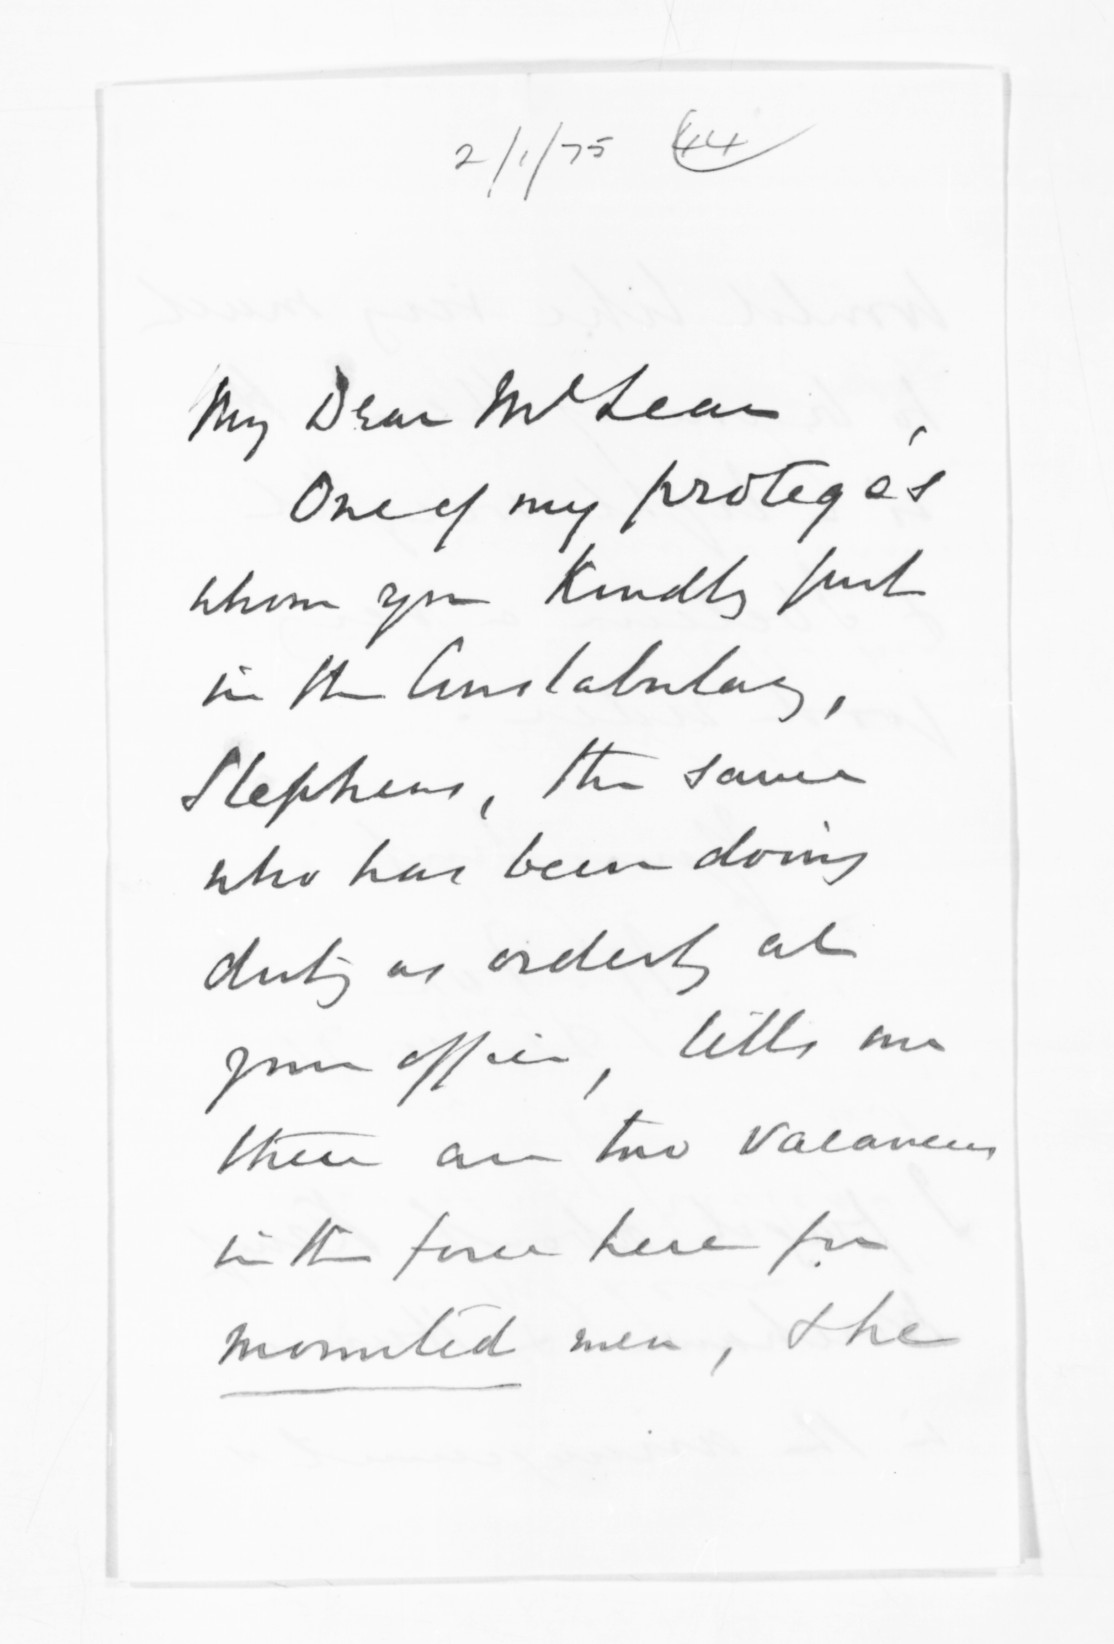 2/1/75 44
My Dear McLean
One of my protegés
whom you kindly put
in the Constabulary,
Stephens, the same
who has been doing
duty as orderly at
your office, tells me
there are two vacancies
in the force here for
mounted men, & he